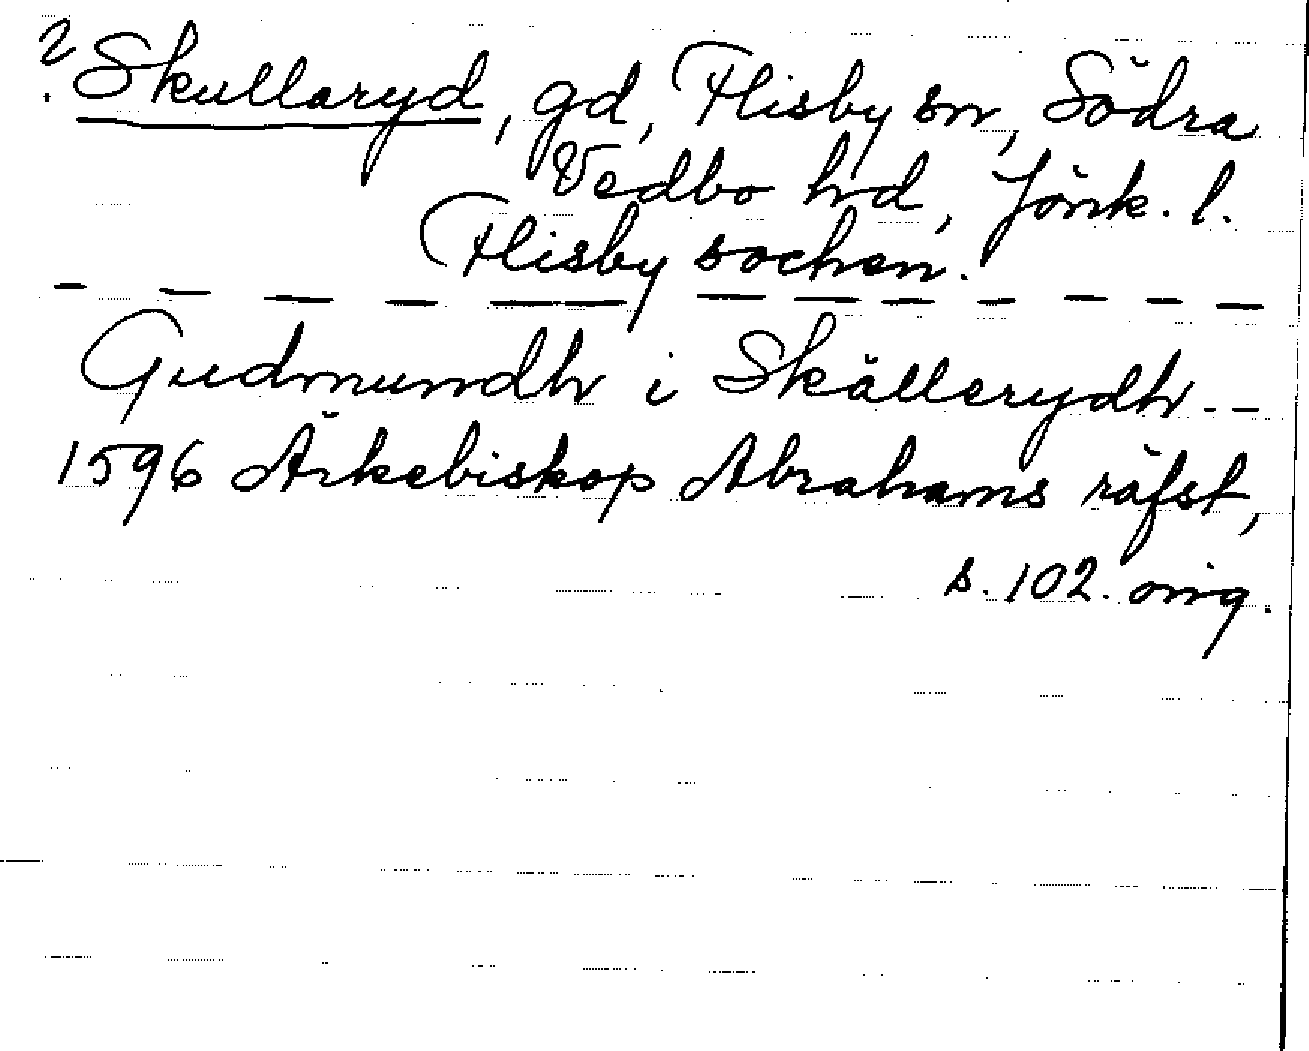 ? Skullaryd, gd, Flisby sn, Södra
Vedbo hd, Jönk. l.
Flisby sochen.
Gudmundh i Skällerydh --
1596 Ärkebiskop Abrahams räfst,
s. 102. orig.